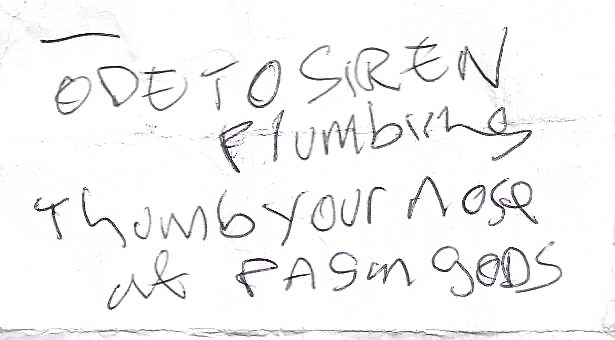 ODE TO SIREN
Plumbing
Thumb your nose
at PAgan gODS